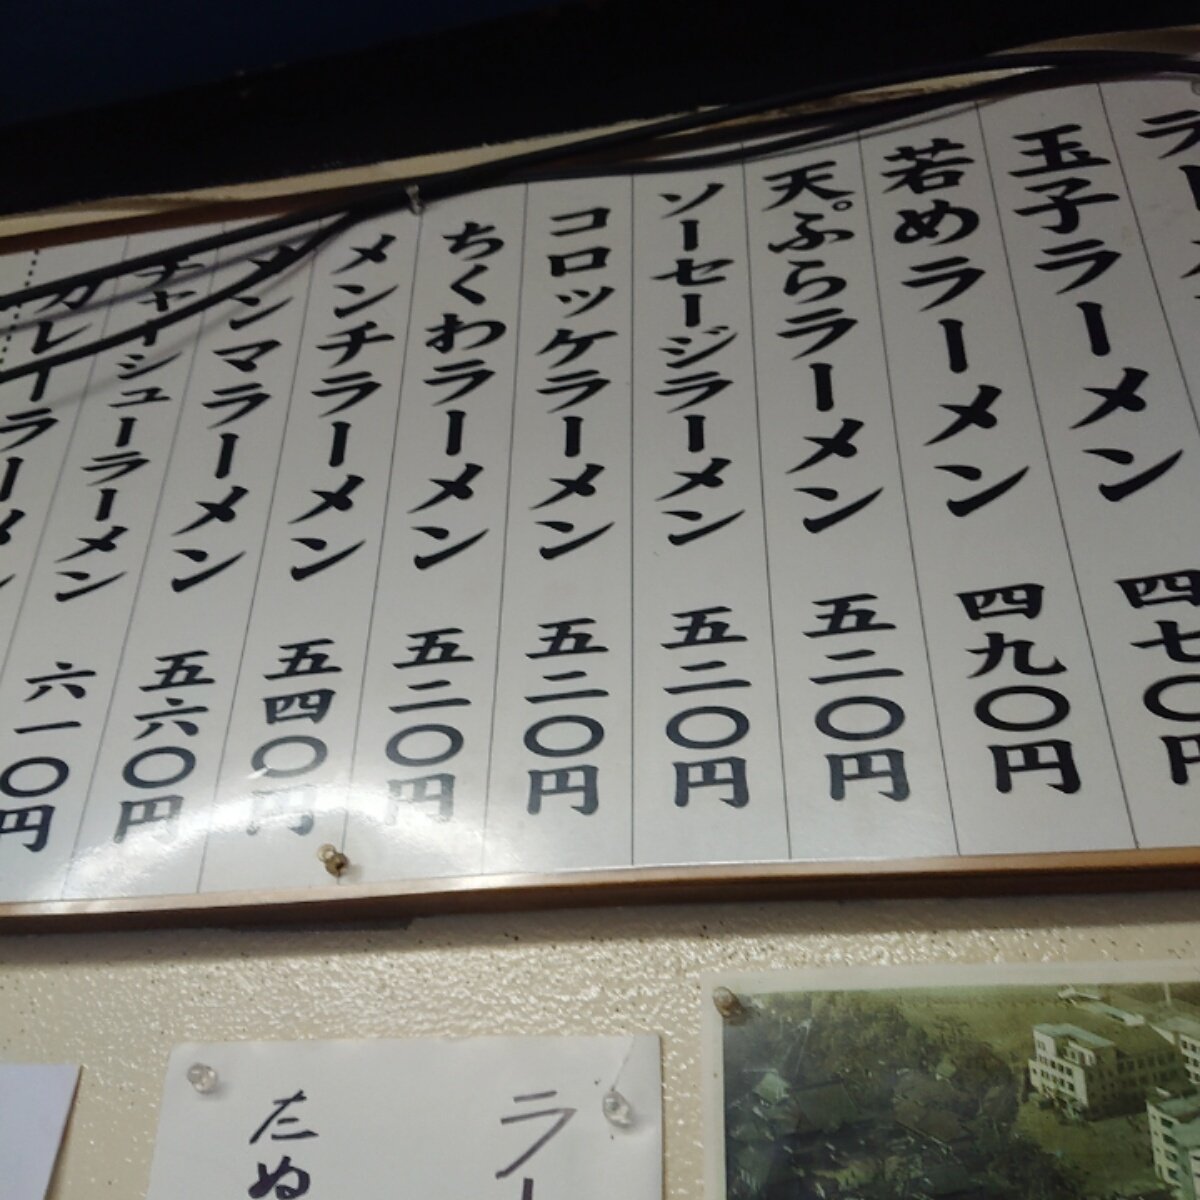 玉子ラーメン 四七〇円
若めラーメン 四九〇円
天ぷらラーメン 五二〇円
ソーセージラーメン 五二〇円
コロッケラーメン 五二〇円
ちくわラーメン 五二〇円
メンチラーメン 五四〇円
メンマラーメン 五六〇円
チャイシューラーメン 六一〇円
カレイラーメン
ラー
たぬ